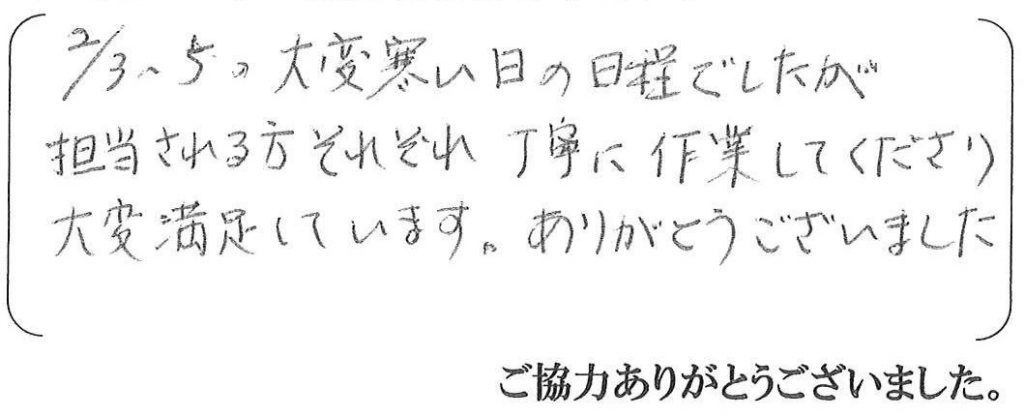 2/3、5の大変寒い日の日程でしたが
担当される方それぞれ丁寧に作業してくださり
大変満足しています。ありがとうございました
ご協力ありがとうございました。